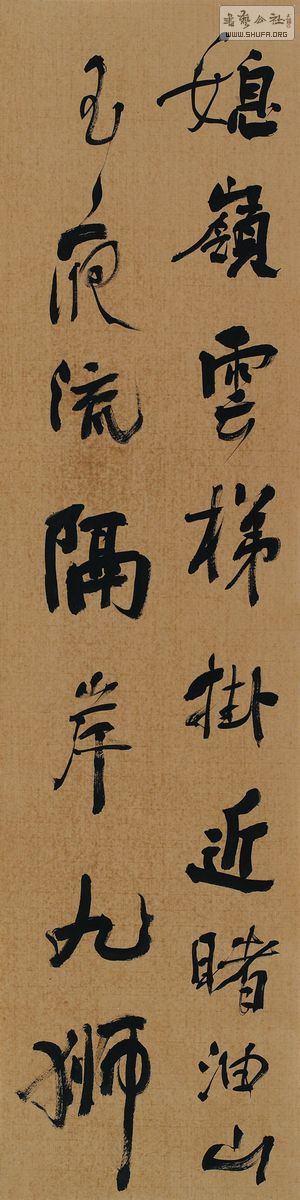 媳嶺雲梯掛近睹油山
玉液流隔岸九獅
書藝公社
WWW.SHUFA.ORG